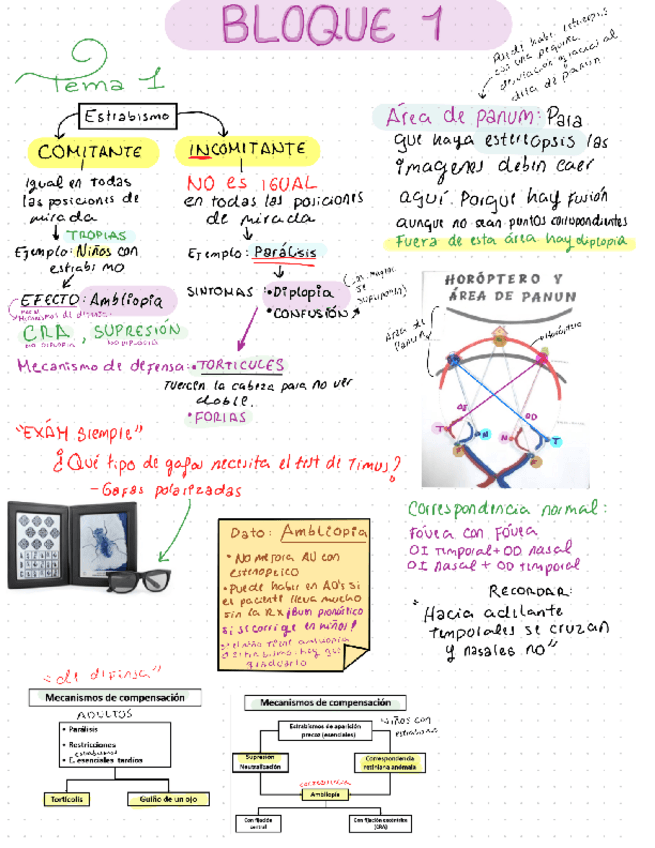 BLOQUE 1
Tema 1
Estrabismo
COMITANTE
INCOMITANTE
igual en todas
las posiciones de
mirada
TROPIAS
Ejemplo: Niños con
estrabismo
EFECTO: Ambliopia
Mecanismos de defensa:
CRA, SUPRESIÓN
NO DIPLOPIA
NO DIPLOPIA
NO es IGUAL
en todas las posiciones
de mirada
Ejemplo: Parálisis
SINTOMAS:
• Diplopia
• CONFUSIÓN
Mecanismo de defensa: • TORTICULES
Tuercen la cabeza para no ver
doble.
• FORIAS
Puede haber estereopsis
con una pequeña
desviación gracias al
área de panum
Área de panum: Para
que haya estereopsis las
imagenes deben caer
aquí. Porque hay fusión
aunque no sean puntos correspondientes
Fuera de esta área hay diplopia
HORÓPTERO Y
ÁREA DE PANUN
Área de
Panum
Horóptero
OI
OD
T
N
N
T
F
F
"EXÁM siempre"
¿Qué tipo de gafas necesita el test de Titmus?
- Gafas polarizadas
Correspondencia normal:
Fóvea con Fóvea
OI temporal + OD nasal
OI nasal + OD temporal
RECORDAR:
"Hacia adelante
temporales se cruzan
y nasales no"
Dato: Ambliopia
• No mejora AV con
estenopeico
• Puede haber en AO's si
el paciente lleva mucho
sin la Rx ¡Buen pronóstico
si se corrige en niños!
si el niño tiene ambliopia
o estrabismo hay que
graduarlo
"de defensa"
Mecanismos de compensación
ADULTOS
• Parálisis
• Restricciones
estrabismos
• E. esenciales tardíos
Tortícolis
Guiño de un ojo
Mecanismos de compensación
Estrabismos de aparición
precoz (esenciales)
Niños con
estrabismo
Supresión
Neutralización
Correspondencia
retiniana anómala
consecuencia
Ambliopía
Con fijación
central
Con fijación excéntrica
(CRA)